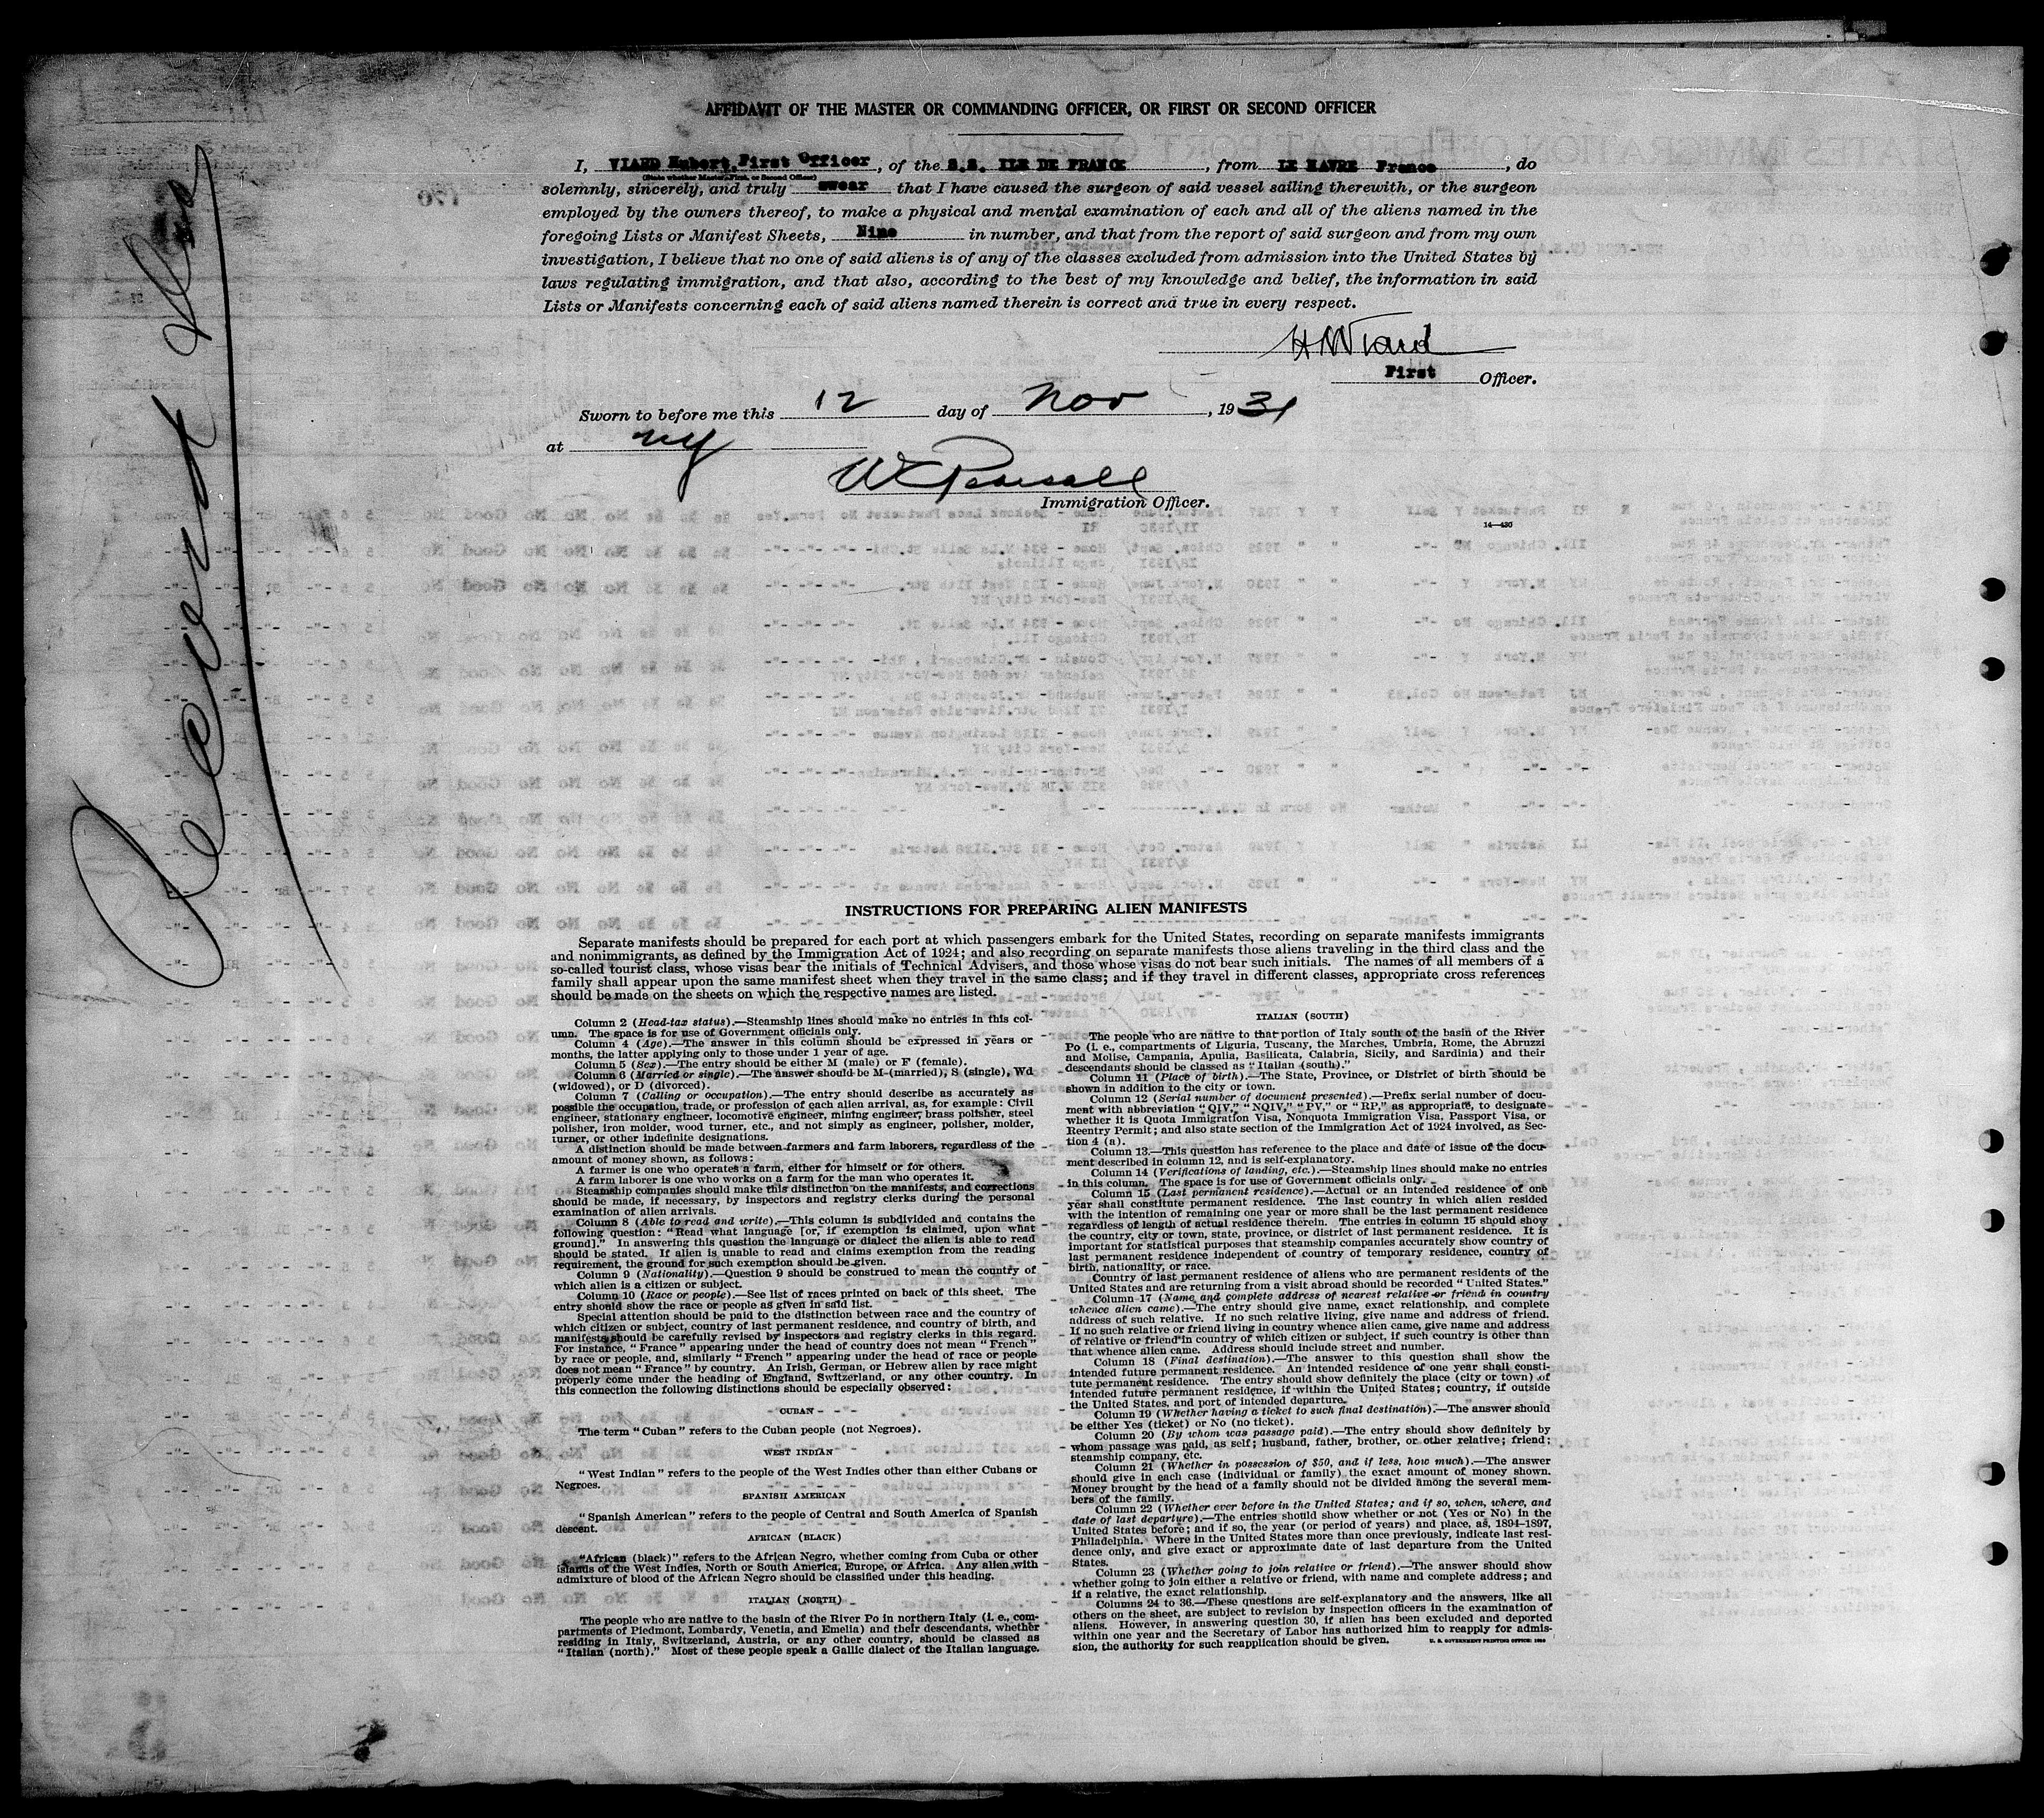 AFFIDAVIT OF THE MASTER OR COMMANDING OFFICER, OR FIRST OR SECOND OFFICER
I, VIARD Hubert, First Officer, of the S.S. ILE DE FRANCE, from LE HAVRE France, do
(State whether Master, First, or Second Officer)
solemnly, sincerely, and truly swear that I have caused the surgeon of said vessel sailing therewith, or the surgeon
employed by the owners thereof, to make a physical and mental examination of each and all of the aliens named in the
foregoing Lists or Manifest Sheets, Nine in number, and that from the report of said surgeon and from my own
investigation, I believe that no one of said aliens is of any of the classes excluded from admission into the United States by
laws regulating immigration, and that also, according to the best of my knowledge and belief, the information in said
Lists or Manifests concerning each of said aliens named therein is correct and true in every respect.
H Viard
First Officer.
Sworn to before me this 12 day of Nov, 1931
at NY
Immigration Officer.
14—430
INSTRUCTIONS FOR PREPARING ALIEN MANIFESTS
Separate manifests should be prepared for each port at which passengers embark for the United States, recording on separate manifests immigrants
and nonimmigrants, as defined by the Immigration Act of 1924; and also recording on separate manifests those aliens traveling in the third class and the
so-called tourist class, whose visas bear the initials of Technical Advisers, and those whose visas do not bear such initials. The names of all members of a
family shall appear upon the same manifest sheet when they travel in the same class; and if they travel in different classes, appropriate cross references
should be made on the sheets on which the respective names are listed.
Column 2 (Head-tax status).—Steamship lines should make no entries in this col-
umn. The space is for use of Government officials only.
Column 4 (Age).—The answer in this column should be expressed in years or
months, the latter applying only to those under 1 year of age.
Column 5 (Sex).—The entry should be either M (male) or F (female).
Column 6 (Married or single).—The answer should be M (married), S (single), Wd
(widowed), or D (divorced).
Column 7 (Calling or occupation).—The entry should describe as accurately as
possible the occupation, trade, or profession of each alien arrival, as, for example: Civil
engineer, stationary engineer, locomotive engineer, mining engineer, brass polisher, steel
polisher, iron molder, wood turner, etc., and not simply as engineer, polisher, molder,
turner, or other indefinite designations.
A distinction should be made between farmers and farm laborers, regardless of the
amount of money shown, as follows:
A farmer is one who operates a farm, either for himself or for others.
A farm laborer is one who works on a farm for the man who operates it.
Steamship companies should make this distinction on the manifests, and corrections
should be made, if necessary, by inspectors and registry clerks during the personal
examination of alien arrivals.
Column 8 (Able to read and write).—This column is subdivided and contains the
following question: "Read what language [or, if exemption is claimed, upon what
ground]." In answering this question the language or dialect the alien is able to read
should be stated. If alien is unable to read and claims exemption from the reading
requirement, the ground for such exemption should be given.
Column 9 (Nationality).—Question 9 should be construed to mean the country of
which alien is a citizen or subject.
Column 10 (Race or people).—See list of races printed on back of this sheet. The
entry should show the race or people as given in said list.
Special attention should be paid to the distinction between race and the country of
which citizen or subject, country of last permanent residence, and country of birth, and
manifests should be carefully revised by inspectors and registry clerks in this regard.
For instance, "France" appearing under the head of country does not mean "French"
by race or people, and, similarly "French" appearing under the head of race or people
does not mean "France" by country. An Irish, German, or Hebrew alien by race might
properly come under the heading of England, Switzerland, or any other country. In
this connection the following distinctions should be especially observed:
CUBAN
The term "Cuban" refers to the Cuban people (not Negroes).
WEST INDIAN
"West Indian" refers to the people of the West Indies other than either Cubans or
Negroes.
SPANISH AMERICAN
"Spanish American" refers to the people of Central and South America of Spanish
descent.
AFRICAN (BLACK)
"African (black)" refers to the African Negro, whether coming from Cuba or other
islands of the West Indies, North or South America, Europe, or Africa. Any alien with
admixture of blood of the African Negro should be classified under this heading.
ITALIAN (NORTH)
The people who are native to the basin of the River Po in northern Italy (i. e., com-
partments of Piedmont, Lombardy, Venetia, and Emelia) and their descendants, whether
residing in Italy, Switzerland, Austria, or any other country, should be classed as
"Italian (north)." Most of these people speak a Gallic dialect of the Italian language.
ITALIAN (SOUTH)
The people who are native to that portion of Italy south of the basin of the River
Po (i. e., compartments of Liguria, Tuscany, the Marches, Umbria, Rome, the Abruzzi
and Molise, Campania, Apulia, Basilicata, Calabria, Sicily, and Sardinia) and their
descendants should be classed as "Italian (south)."
Column 11 (Place of birth).—The State, Province, or District of birth should be
shown in addition to the city or town.
Column 12 (Serial number of document presented).—Prefix serial number of docu-
ment with abbreviation "QIV," "NQIV," "PV," or "RP," as appropriate, to designate
whether it is Quota Immigration Visa, Nonquota Immigration Visa, Passport Visa, or
Reentry Permit; and also state section of the Immigration Act of 1924 involved, as Sec-
tion 4 (a).
Column 13.—This question has reference to the place and date of issue of the docu-
ment described in column 12, and is self-explanatory.
Column 14 (Verifications of landing, etc.).—Steamship lines should make no entries
in this column. The space is for use of Government officials only.
Column 15 (Last permanent residence).—Actual or an intended residence of one
year shall constitute permanent residence. The last country in which alien resided
with the intention of remaining one year or more shall be the last permanent residence
regardless of length of actual residence therein. The entries in column 15 should show
the country, city or town, state, province, or district of last permanent residence. It is
important for statistical purposes that steamship companies accurately show country of
last permanent residence independent of country of temporary residence, country of
birth, nationality, or race.
Country of last permanent residence of aliens who are permanent residents of the
United States and are returning from a visit abroad should be recorded "United States."
Column 17 (Name and complete address of nearest relative or friend in country
whence alien came).—The entry should give name, exact relationship, and complete
address of such relative. If no such relative living, give name and address of friend.
If no such relative or friend living in country whence alien came, give name and address
of relative or friend in country of which citizen or subject, if such country is other than
that whence alien came. Address should include street and number.
Column 18 (Final destination).—The answer to this question shall show the
intended future permanent residence. An intended residence of one year shall consti-
tute permanent residence. The entry should show definitely the place (city or town) of
intended future permanent residence, if within the United States; country, if outside
the United States, and port of intended departure.
Column 19 (Whether having a ticket to such final destination).—The answer should
be either Yes (ticket) or No (no ticket).
Column 20 (By whom was passage paid).—The entry should show definitely by
whom passage was paid, as self; husband, father, brother, or other relative; friend;
steamship company, etc.
Column 21 (Whether in possession of $50, and if less, how much).—The answer
should give in each case (individual or family) the exact amount of money shown.
Money brought by the head of a family should not be divided among the several mem-
bers of the family.
Column 22 (Whether ever before in the United States; and if so, when, where, and
date of last departure).—The entries should show whether or not (Yes or No) in the
United States before; and if so, the year (or period of years) and place, as, 1894–1897,
Philadelphia. Where in the United States more than once previously, indicate last resi-
dence only, and give exact or approximate date of last departure from the United
States.
Column 23 (Whether going to join relative or friend).—The answer should show
whether going to join either a relative or friend, with name and complete address; and
if a relative, the exact relationship.
Columns 24 to 36.—These questions are self-explanatory and the answers, like all
others on the sheet, are subject to revision by inspection officers in the examination of
aliens. However, in answering question 30, if alien has been excluded and deported
within one year and the Secretary of Labor has authorized him to reapply for admis-
sion, the authority for such reapplication should be given.